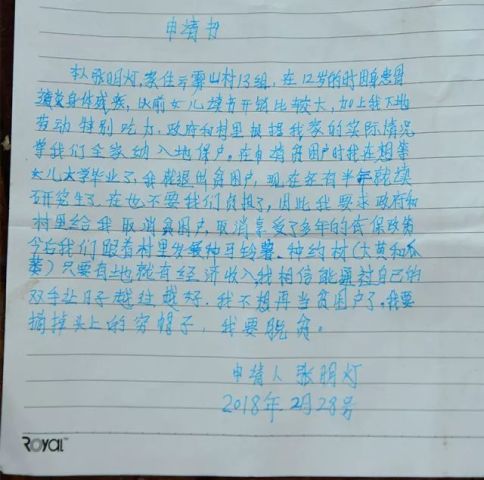 申请书
本人张明灯,家住云雾山村13组,在12岁的时因身患骨
身体残疾,以前女儿读书开销比较大,加上我下地
劳动特别吃力,政府和村里根据我家的实际情况
拿我们全家纳入地保户。在申请贫困户时我在想等
女儿大学毕业了,我就退出贫困户,现在还有半年就读
研究生了,在也不要我们负担了,因此我要求政府和
村里给我取消贫困户,取消享受了多年的低保政策
今后我们跟着村里发展种马铃薯、种药材(大黄和瓜
蒌)只要有土地就有经济收入我相信能通过自己的
双手让日子越过越好.我不想再当贫困户了.我要
摘掉头上的穷帽子,我要脱贫。
申请人 张明灯
2018年2月28号
ROYAL